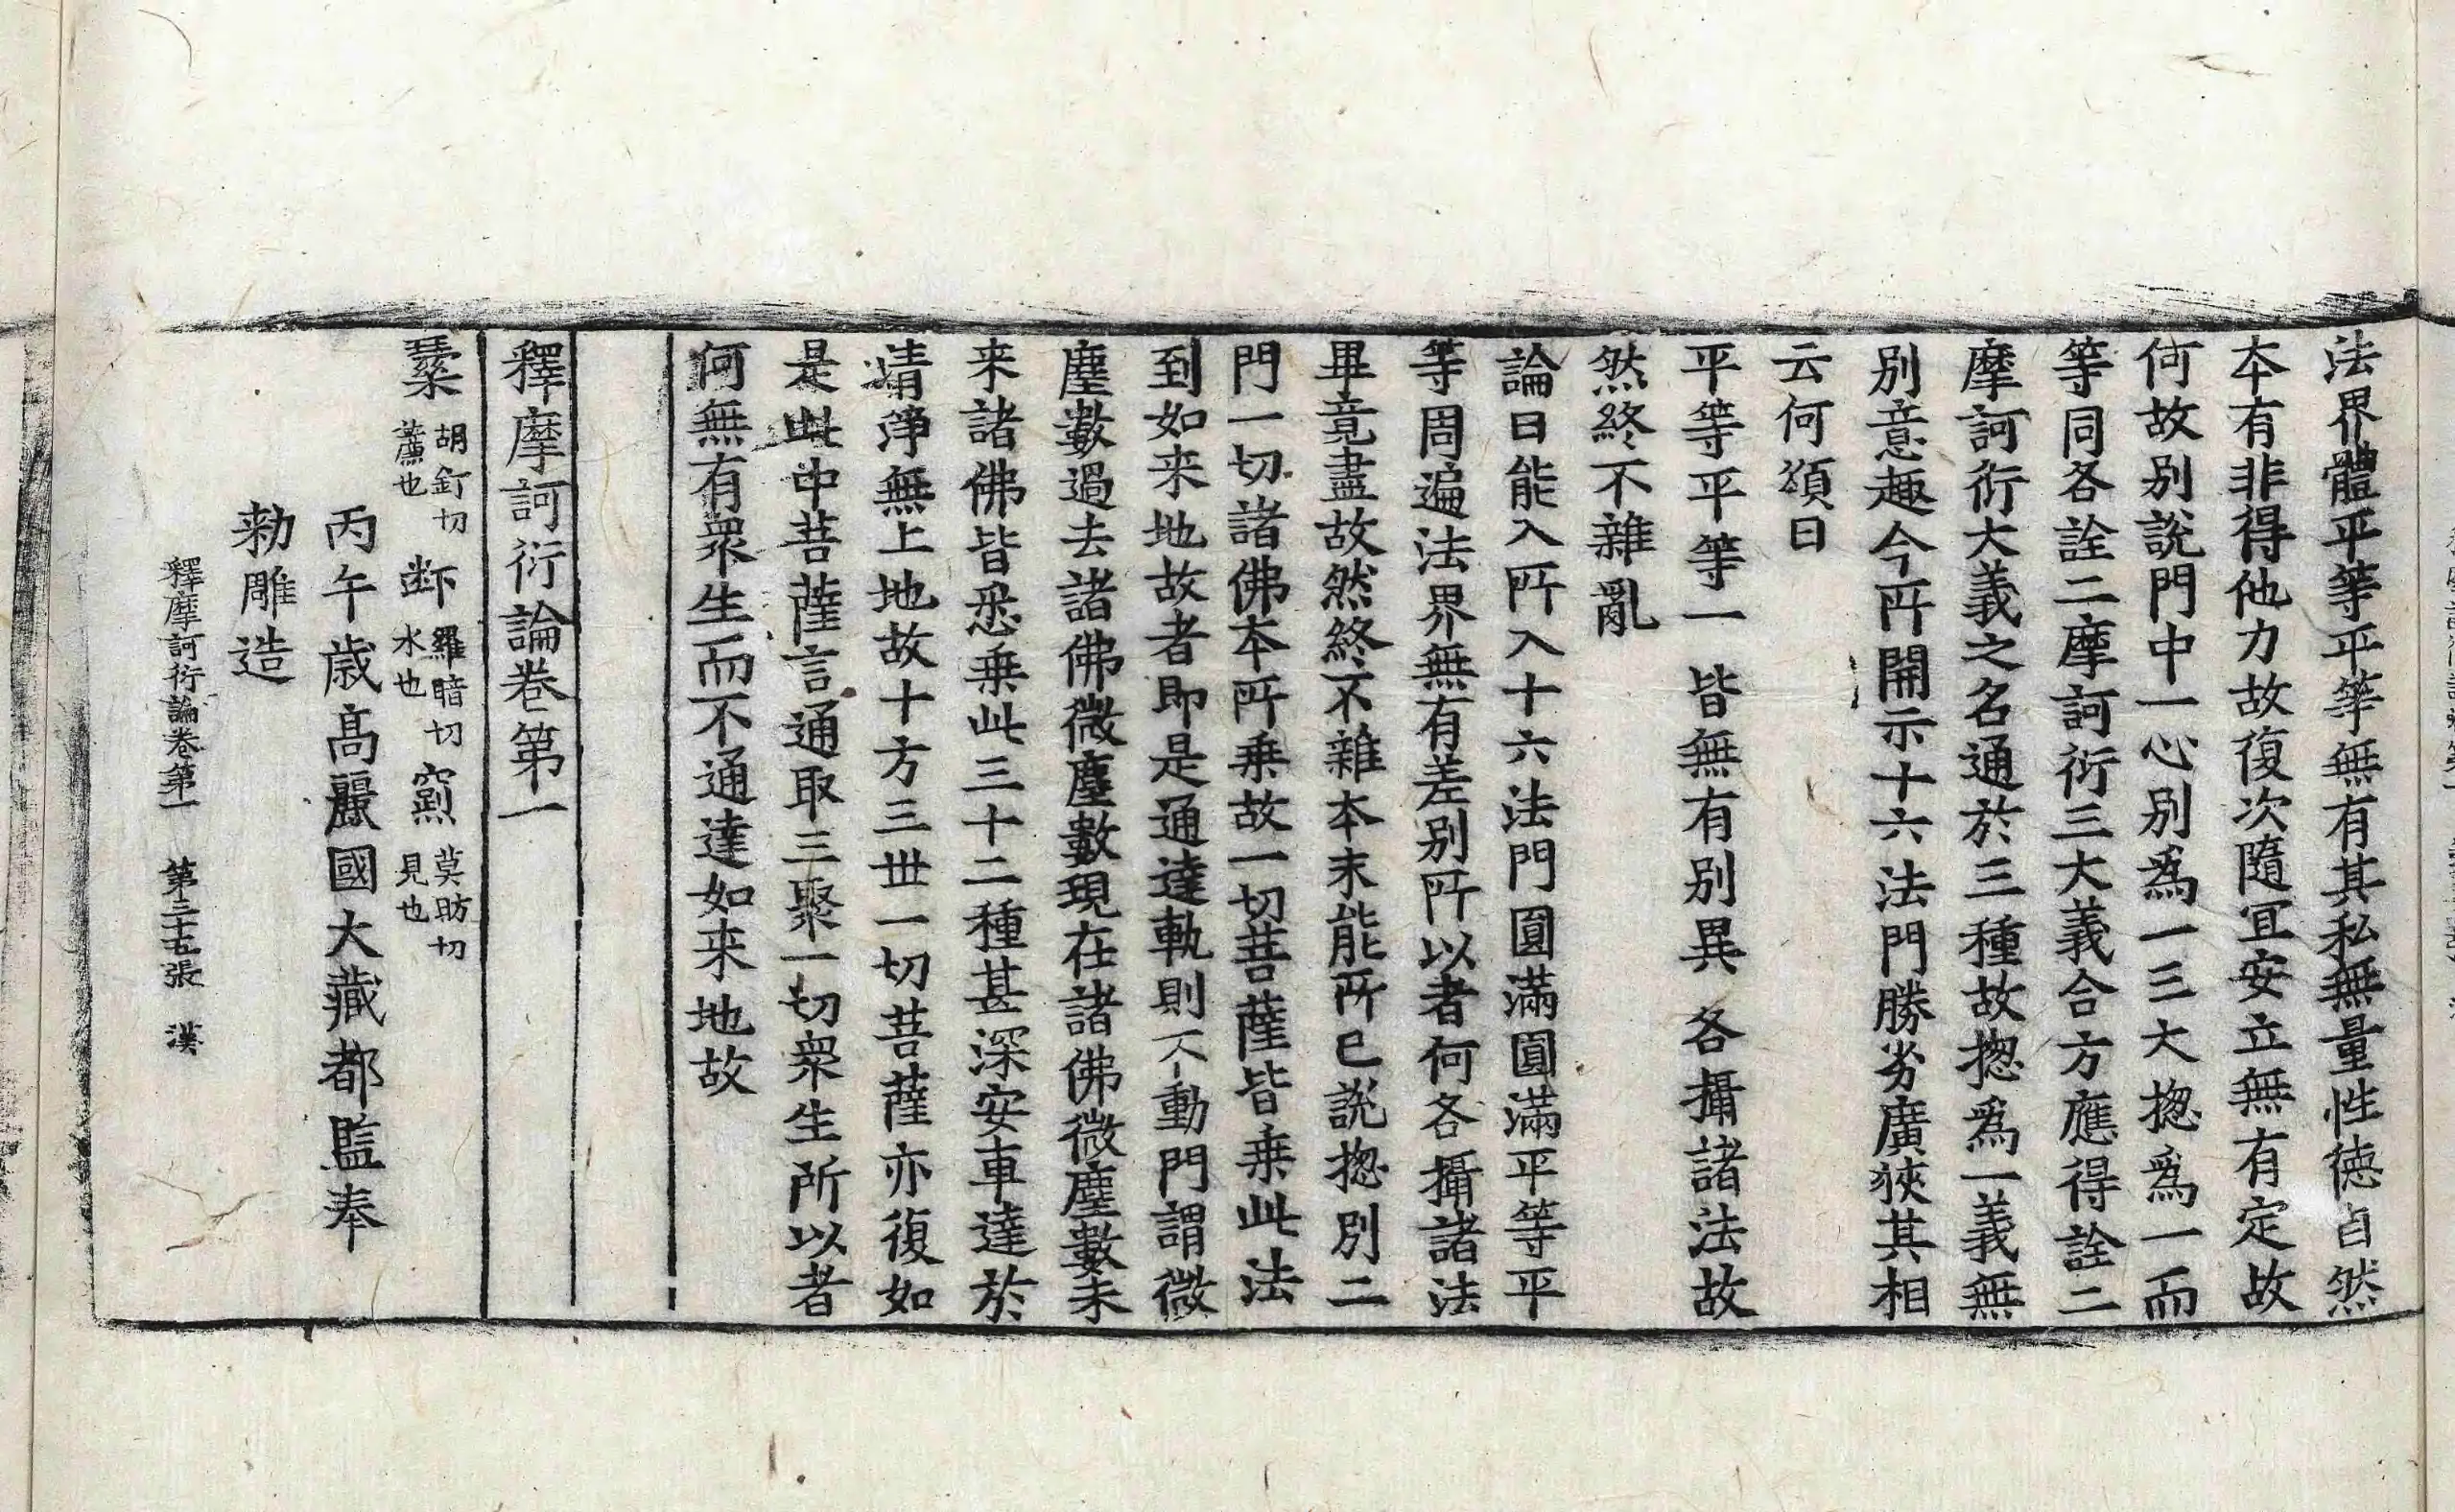 法界體平等平等無有其私無量性徳自然
本有非得他力故復次隨冝安立無有定故
何故別說門中一心別爲一三大揔爲一而
等同各詮二摩訶衍三大義合方應得詮二
摩訶衍大義之名通於三種故揔爲一義無
別意趣今所開示十六法門勝劣廣狹其相
云何頌曰
平等平等一 皆無有別異 各攝諸法故
然終不雜亂
論曰能入所入十六法門圓滿圓滿平等平
等周遍法界無有差別所以者何各攝諸法
畢竟盡故然終不雜本末能所已說揔別二
門一切諸佛本所乗故一切菩薩皆乗此法
到如来地故者即是通達軌則不動門謂微
塵數過去諸佛微塵數現在諸佛微塵數未
来諸佛皆悉乗此三十二種甚深安車達於
清淨無上地故十方三丗一切菩薩亦復如
是此中菩薩言通取三聚一切衆生所以者
何無有衆生而不通達如来地故
釋摩訶衍論卷第一
胡釘切 薰也 羅暗切 水也 莫昉切 見也
丙午歲髙麗國大藏都監奉
勅雕造
釋摩訶衍論卷第一 第三十五張 漢